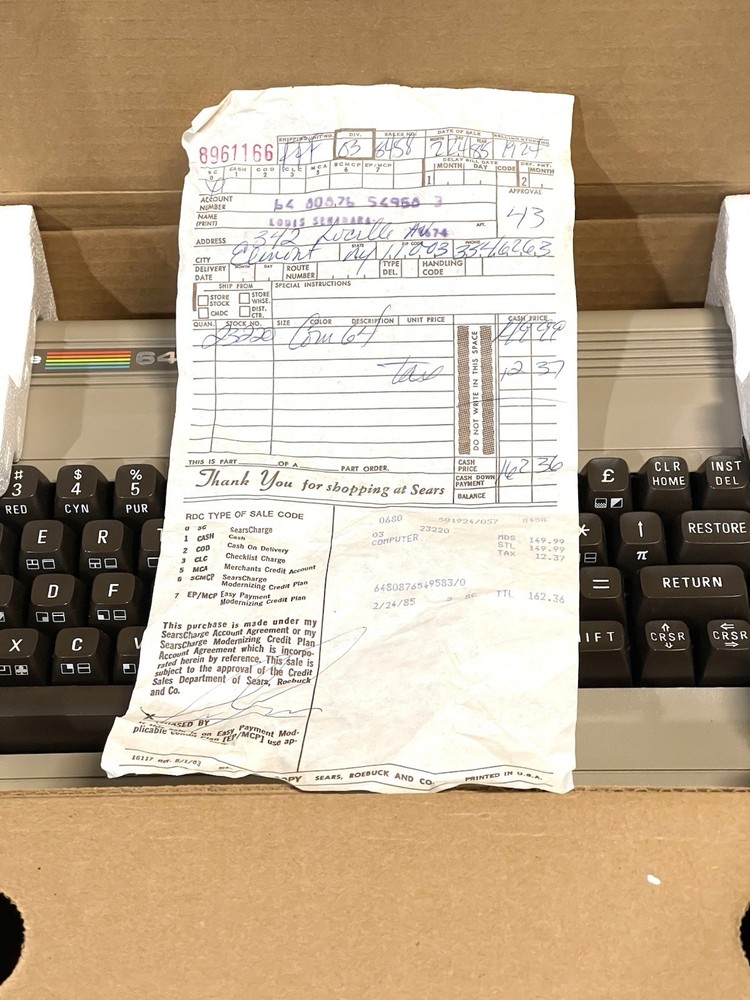 8961166
SHIPPING UNIT NO. DIV. SALES NO. DATE OF SALE
03 6458 2 24 85 1924
SC CASH COD CLC MCA SCMCP EP/MCP DELAY BILL DATE
0 1 2 3 5 6 7 1 MONTH DAY CODE 2 MONTH
ACCOUNT NUMBER 64 80876 54958 3 APPROVAL
NAME (PRINT) LOUIS APT. 43
ADDRESS 342 Lucille Ave
CITY Elmont STATE NY ZIP CODE 11003 PHONE 3546263
DELIVERY DATE MONTH DAY ROUTE NUMBER TYPE DEL. HANDLING CODE
SHIP FROM SPECIAL INSTRUCTIONS
STORE STOCK STORE WHSE.
CMDC DIST. CTR.
QUAN. STOCK NO. SIZE COLOR DESCRIPTION UNIT PRICE CASH PRICE
23220 Com 64 149 99
Tax 12 37
DO NOT WRITE IN THIS SPACE
THIS IS PART OF A PART ORDER.
CASH PRICE 162 36
CASH DOWN PAYMENT
BALANCE
Thank You for shopping at Sears
RDC TYPE OF SALE CODE
0 SC SearsCharge
1 CASH Cash
2 COD Cash On Delivery
3 CLC Checklist Charge
5 MCA Merchants Credit Account
6 SCMCP SearsCharge Modernizing Credit Plan
7 EP/MCP Easy Payment Modernizing Credit Plan
This purchase is made under my
SearsCharge Account Agreement or my
SearsCharge Modernizing Credit Plan
Account Agreement which is incorpo-
rated herein by reference. This sale is
subject to the approval of the Credit
Sales Department of Sears, Roebuck
and Co.
X
PURCHASED BY
on Easy Payment Mod-
plicable Plan (EP/MCP) use ap-
16117 Rev. 8/1/83
COPY SEARS, ROEBUCK AND CO. PRINTED IN U.S.A.
0680 501924/057 6458
03 23220
COMPUTER MDS 149.99
STL 149.99
TAX 12.37
6480876549583/0
2/24/85 SC TTL 162.36
64
# 3 $ 4 % 5 £ CLR HOME INST DEL
RED CYN PUR
E R * ↑ π RESTORE
D F = RETURN
X C V SHIFT CRSR CRSR